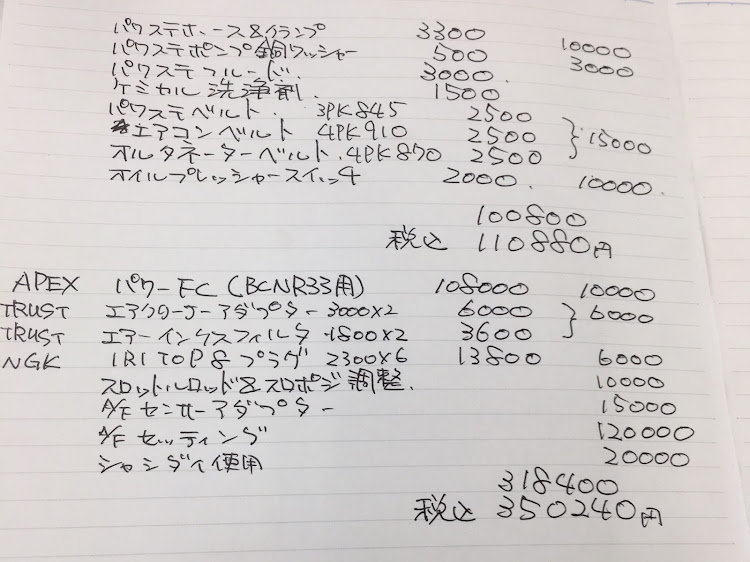 パワステホース&クランプ 3300
パワステポンプ銅ワッシャー 500 10000
パワステフルード. 3000. 3000
ケミカル 洗浄剤. 1500
パワステベルト. 3PK845 2500
エアコンベルト 4PK910 2500 15000
オルタネーターベルト. 4PK870 2500
オイルプレッシャースイッチ 2000. 10000.
100800
税込 110880円
APEX パワーFC (BCNR33用) 108000 10000
TRUST エアクリーナーアダプター 3000×2 6000 6000
TRUST エアーインクスフィルタ 1800×2 3600
NGK IRITOP8 プラグ 2300×6 13800 6000
スロットルロッド&スロポジ調整. 10000
A/Fセンサーアダプター 15000
A/Fセッティング 120000
シャシダイ使用 20000
318400
税込 350240円